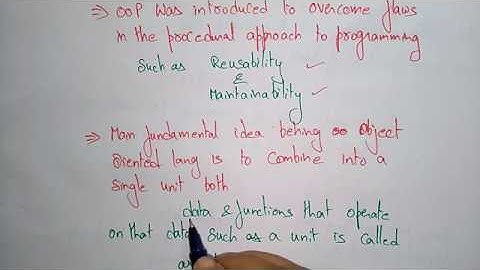 ⇒ OOP was introduced to overcome flaws
in the procedural approach to programming
Such as Reusability ✓
&
Maintainability ✓
⇒ Main fundamental idea behing Object
Oriented lang is to Combine into a
Single unit both
data & functions that operate
on that data such as a unit is called